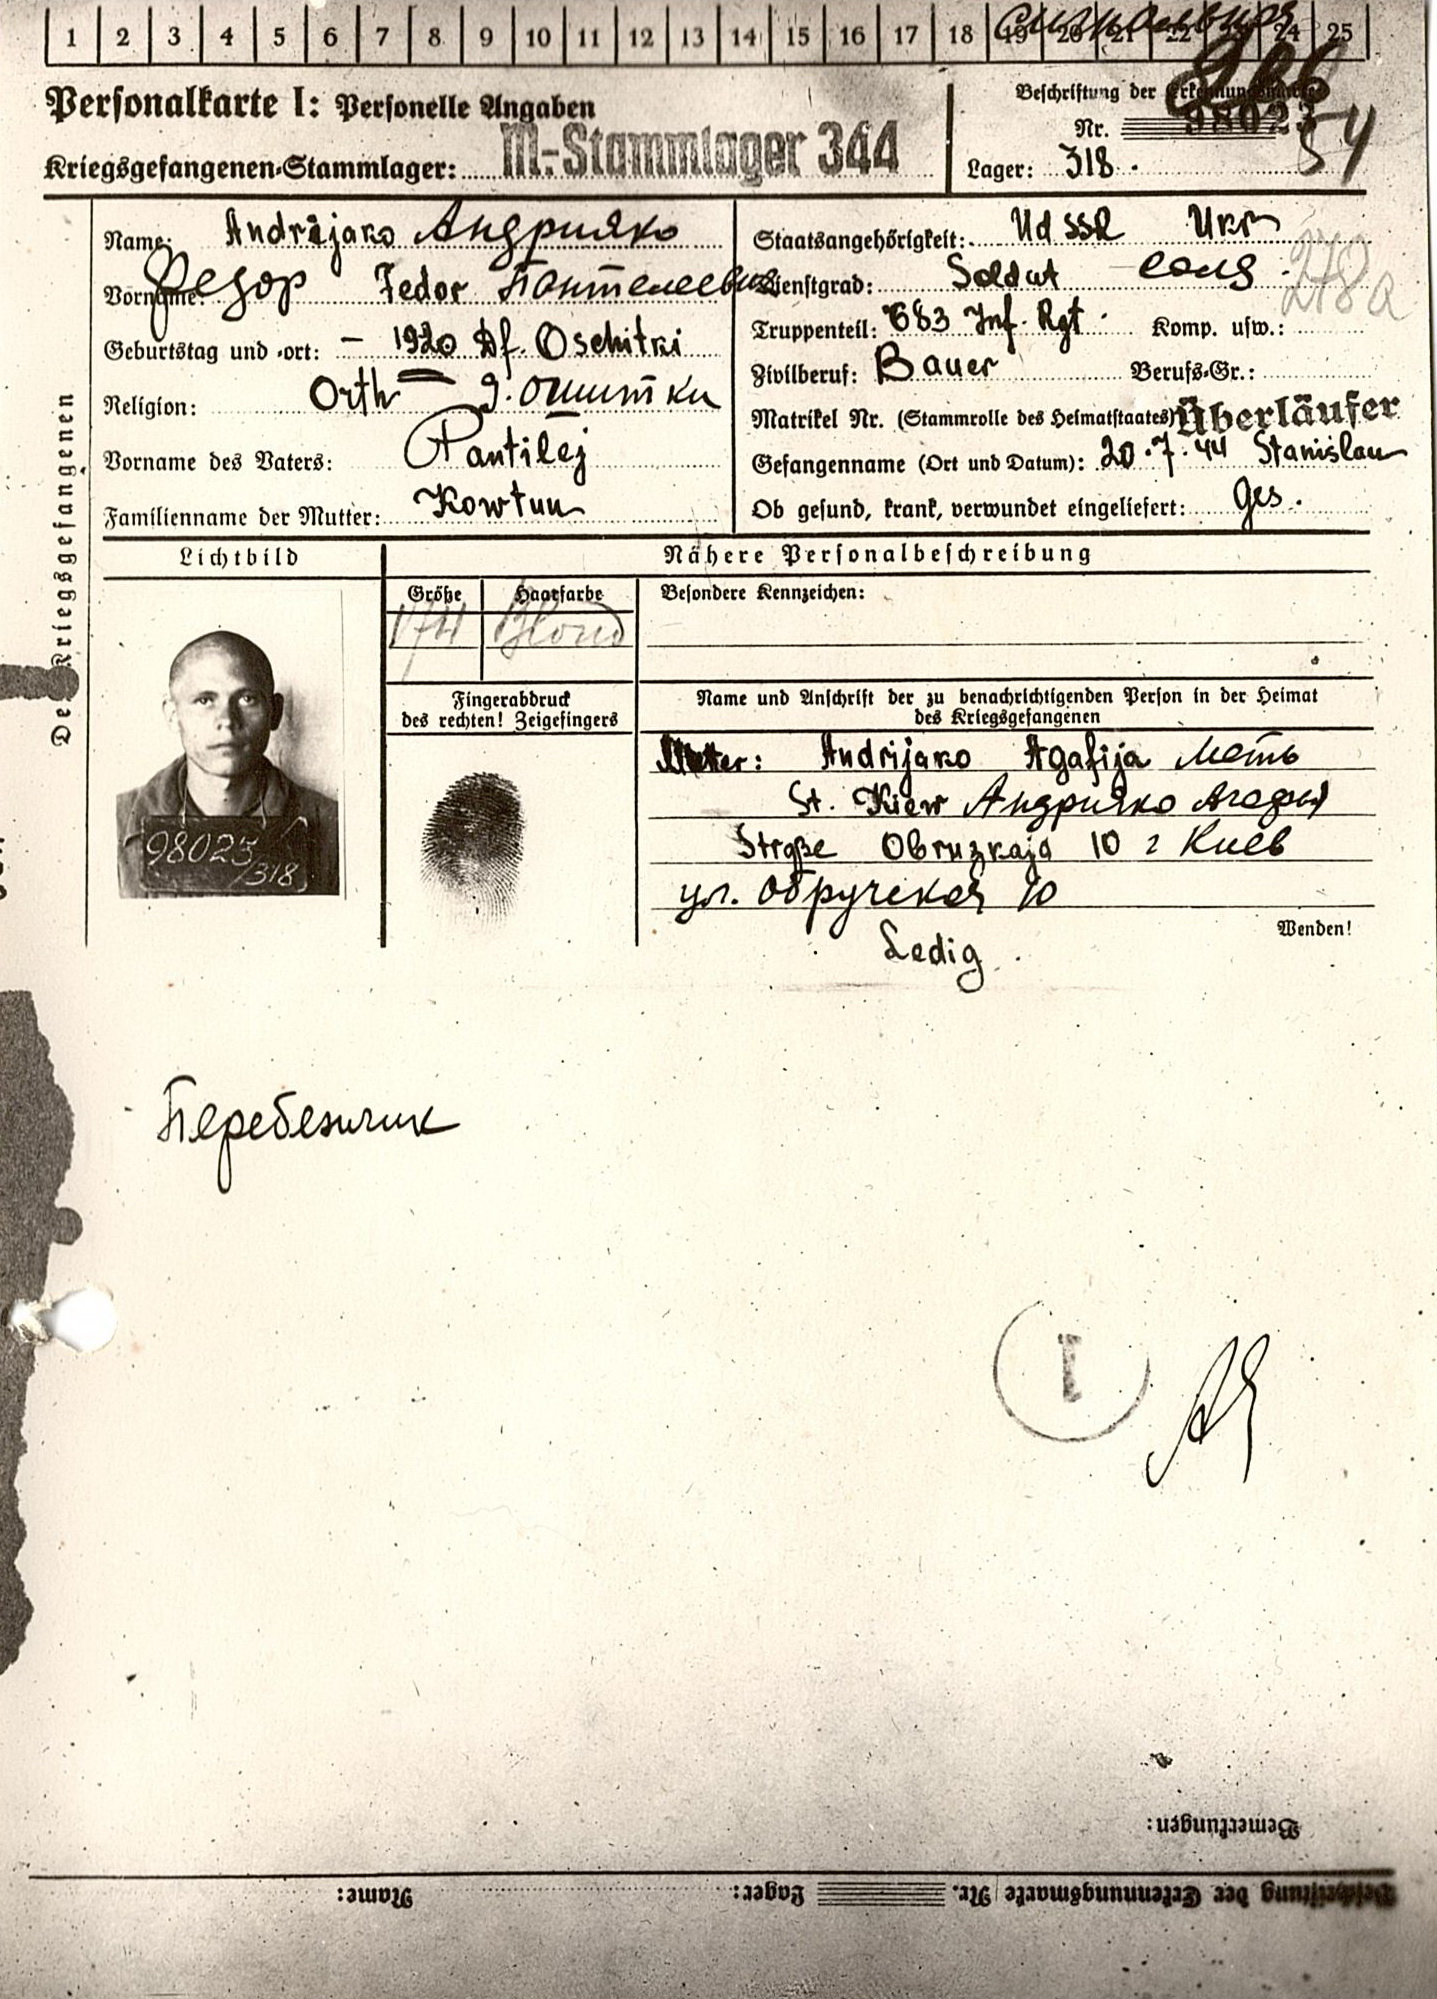 1 2 3 4 5 6 7 8 9 10 11 12 13 14 15 16 17 18 19 20 21 22 23 24 25
Personalkarte I: Personelle Angaben
Kriegsgefangenen-Stammlager: M.-Stammlager 344
Beschriftung der Erkennungsmarke
Nr. 98023
54
Lager: 318.
Name: Andrijako Андрияко
Vorname: Федор Fedor Пантелеевич
Geburtstag und -ort: - 1920 Df. Oschitki
Religion: Orth д. Ошитки
Vorname des Vaters: Pantilej
Familienname der Mutter: Kowtun
Staatsangehörigkeit: UdSSR Ukr
Dienstgrad: Soldat солд.
278a
Truppenteil: 683 Inf. Rgt. Komp. usw.:
Zivilberuf: Bauer Berufs-Gr.:
Matrikel Nr. (Stammrolle des Heimatstaates) Überläufer
Gefangenname (Ort und Datum): 20.7.44 Stanislau
Ob gesund, krank, verwundet eingeliefert: Ges.
Der Kriegsgefangenen
Lichtbild
Nähere Personalbeschreibung
Größe Haarfarbe Besondere Kennzeichen:
174 Blond
Fingerabdruck
des rechten! Zeigefingers
Name und Anschrift der zu benachrichtigenden Person in der Heimat
des Kriegsgefangenen
Mutter: Andrijako Agafija мать
St. Kiew Андрияко Агафья
Straße Obruzkaja 10 г Киев
ул. Обручская 10
Wenden!
Ledig.
98023
/318
Перебежчик
I
Bemerkungen:
Beschriftung der Erkennungsmarke Nr. Lager: Name: